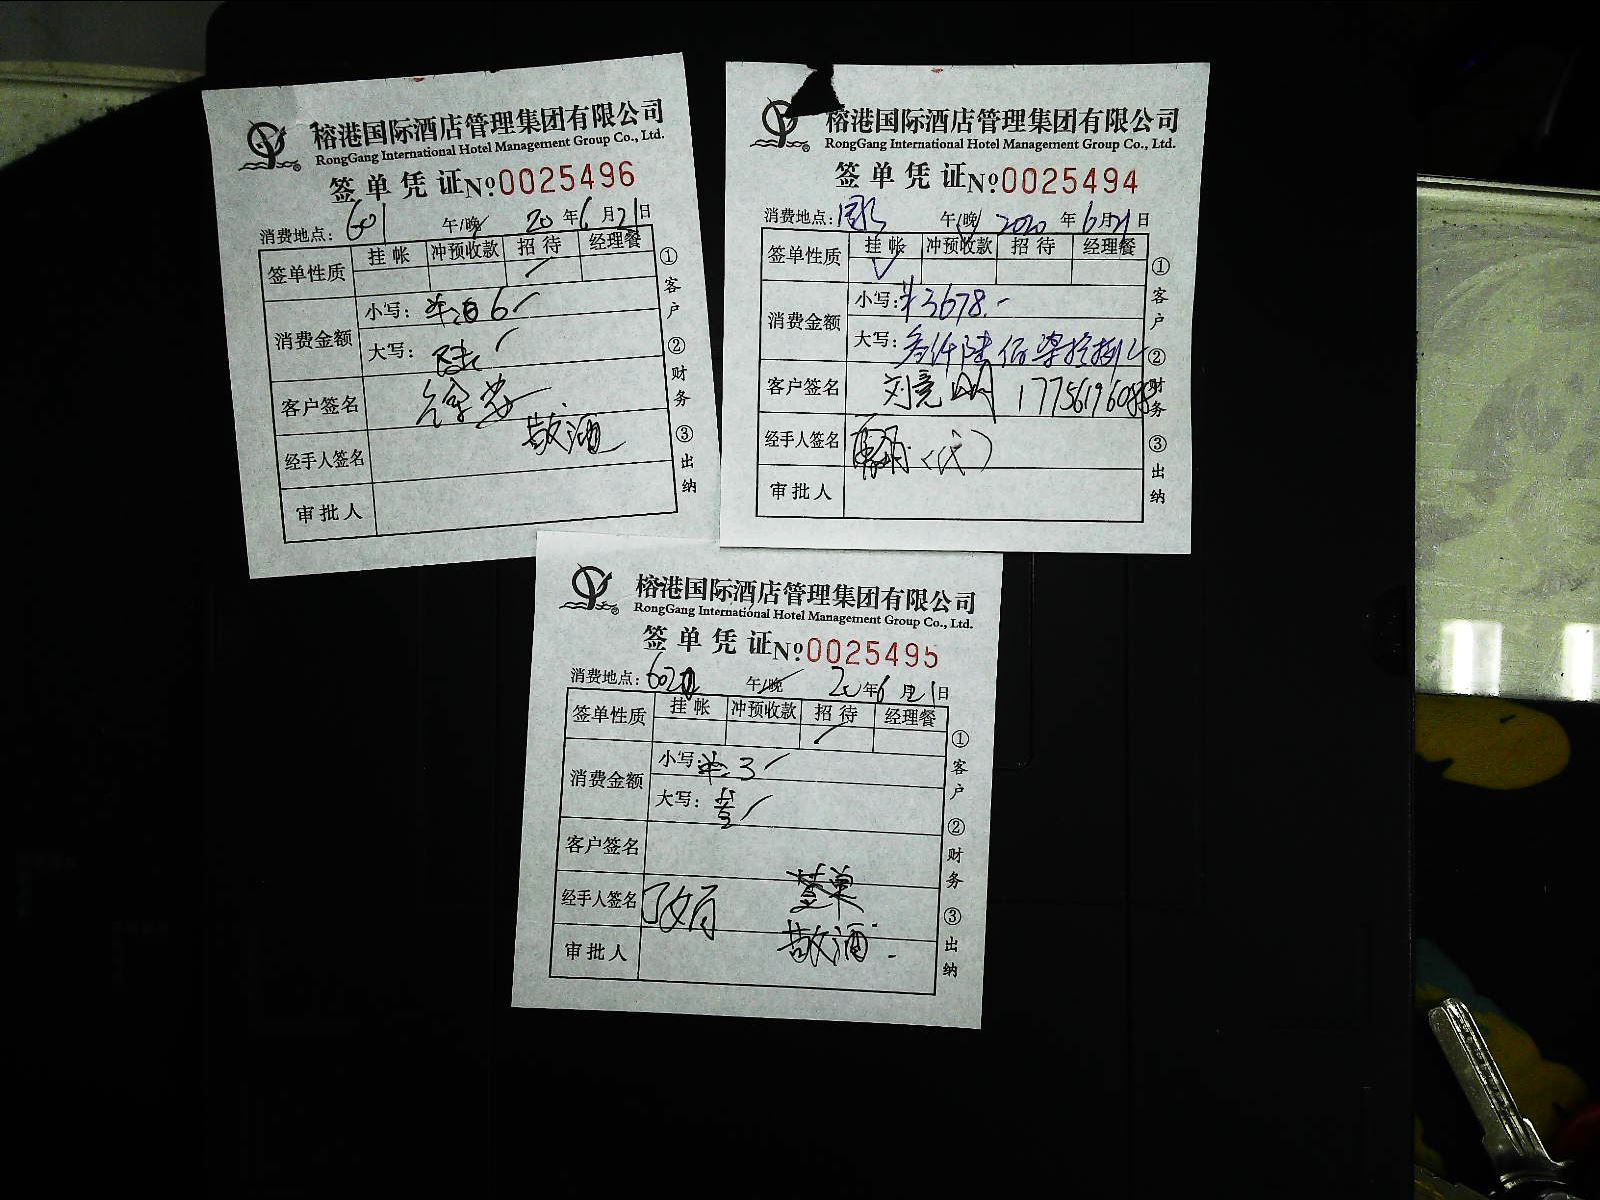 榕港国际酒店管理集团有限公司
RongGang International Hotel Management Group Co., Ltd.
签单凭证 Nº 0025496
消费地点: 601 午/晚 20 年 6 月 21 日
签单性质 挂帐 冲预收款 招待 经理餐
消费金额
小写: 6
大写: 陆
客户签名
敬酒
经手人签名
审批人
① 客户 ② 财务 ③ 出纳
榕港国际酒店管理集团有限公司
RongGang International Hotel Management Group Co., Ltd.
签单凭证 Nº 0025494
消费地点: 午/晚 2020 年 6 月 21 日
签单性质 挂帐 冲预收款 招待 经理餐
消费金额
小写: ¥3678.-
大写: 叁仟陆佰柒拾捌
客户签名 刘亮
经手人签名 (代)
审批人
① 客户 ② 财务 ③ 出纳
榕港国际酒店管理集团有限公司
RongGang International Hotel Management Group Co., Ltd.
签单凭证 Nº 0025495
消费地点: 602 午/晚 20 年 6 月 21 日
签单性质 挂帐 冲预收款 招待 经理餐
消费金额
小写: 3
大写:
客户签名
经手人签名
敬酒
审批人
① 客户 ② 财务 ③ 出纳